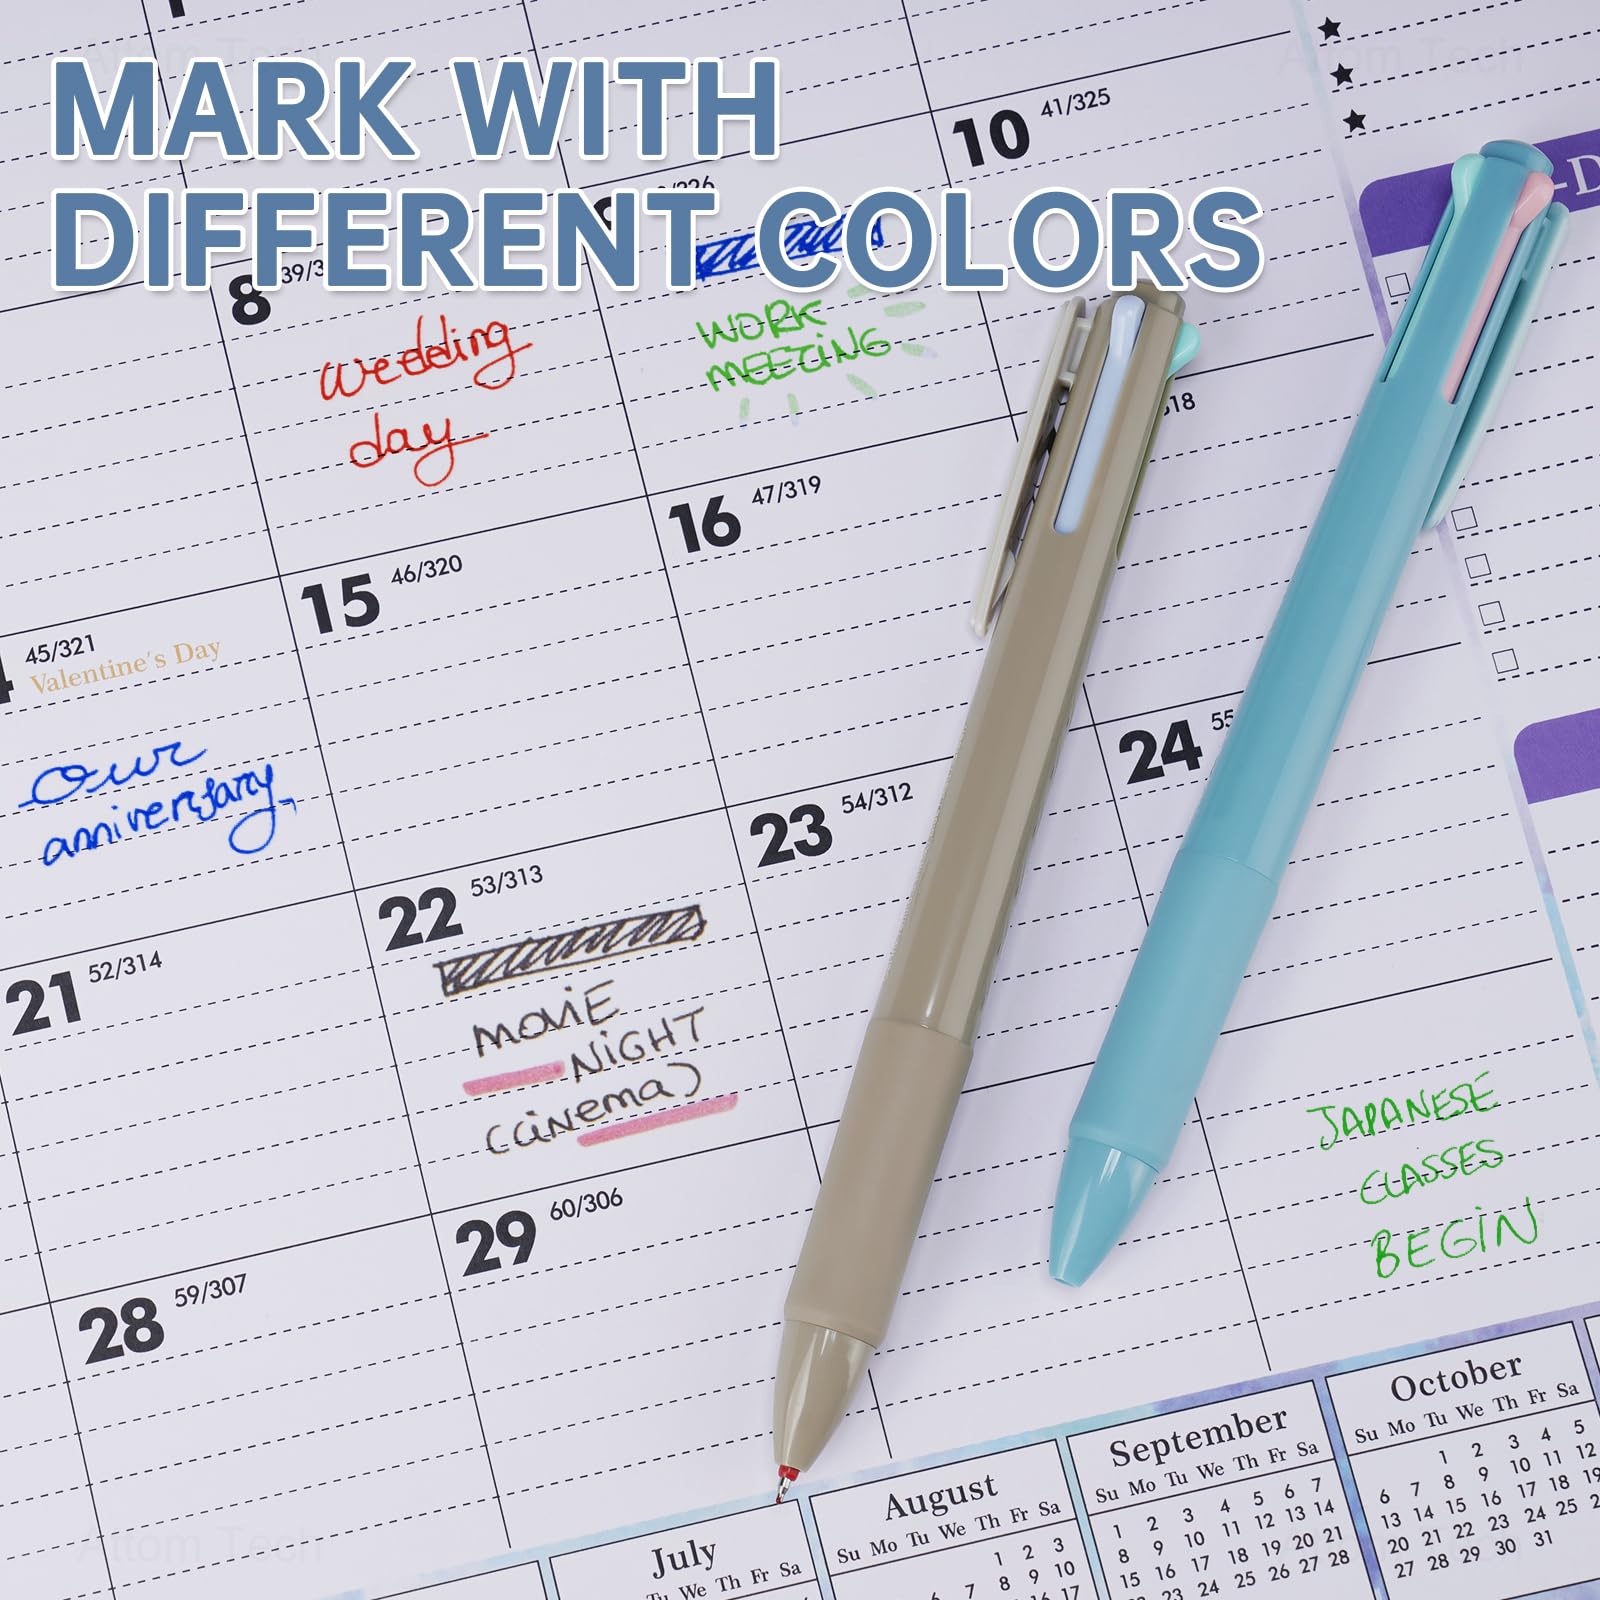 MARK WITH
DIFFERENT COLORS
Attom Tech
10 41/325
8 39/3
wedding
day
WORK
MEETING
318
16 47/319
15 46/320
45/321
Valentine's Day
Our
anniversary
24 55
23 54/312
22 53/313
21 52/314
MOVIE
NIGHT
(cinema)
JAPANESE
CLASSES
BEGIN
29 60/306
28 59/307
October
Su Mo Tu We Th Fr Sa
1 2 3 4 5
6 7 8 9 10 11 12
13 14 15 16 17 18 19
20 21 22 23 24 25
27 28 29 30 31
September
Su Mo Tu We Th Fr Sa
1 2 3 4 5 6 7
8 9 10 11 12 13 14
15 16 17 18 19 20 21
23 24 25 26 27 28
August
Su Mo Tu We Th Fr Sa
1 2 3
6 7 8 9 10
16 17
July
Tu We Th Fr Sa
Attom Tech